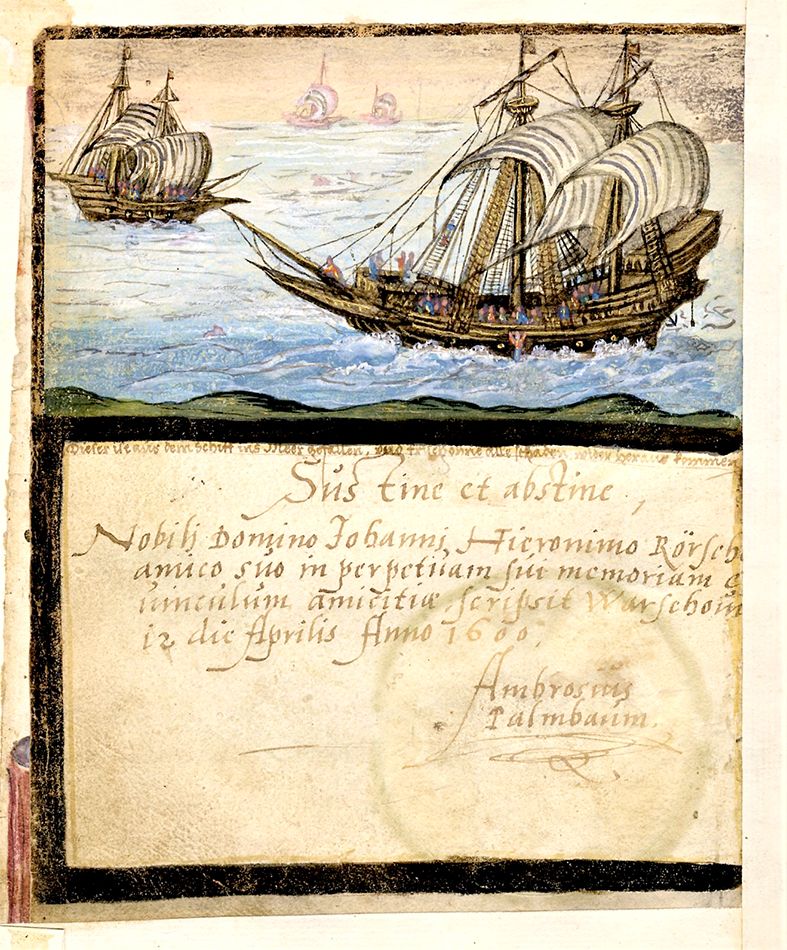 Dieser ist aus dem Schiff ins Meer gefallen, und frisch ohne alle schaden wider heraus kommen
Sustine et abstine,
Nobili Domino Johanni Hieronimo Rörsch
amico suo in perpetuam sui memoriam
vinculum amicitiæ scripsit Warschoui
12 die Aprilis Anno 1600,
Ambrosius
Palmbaum.